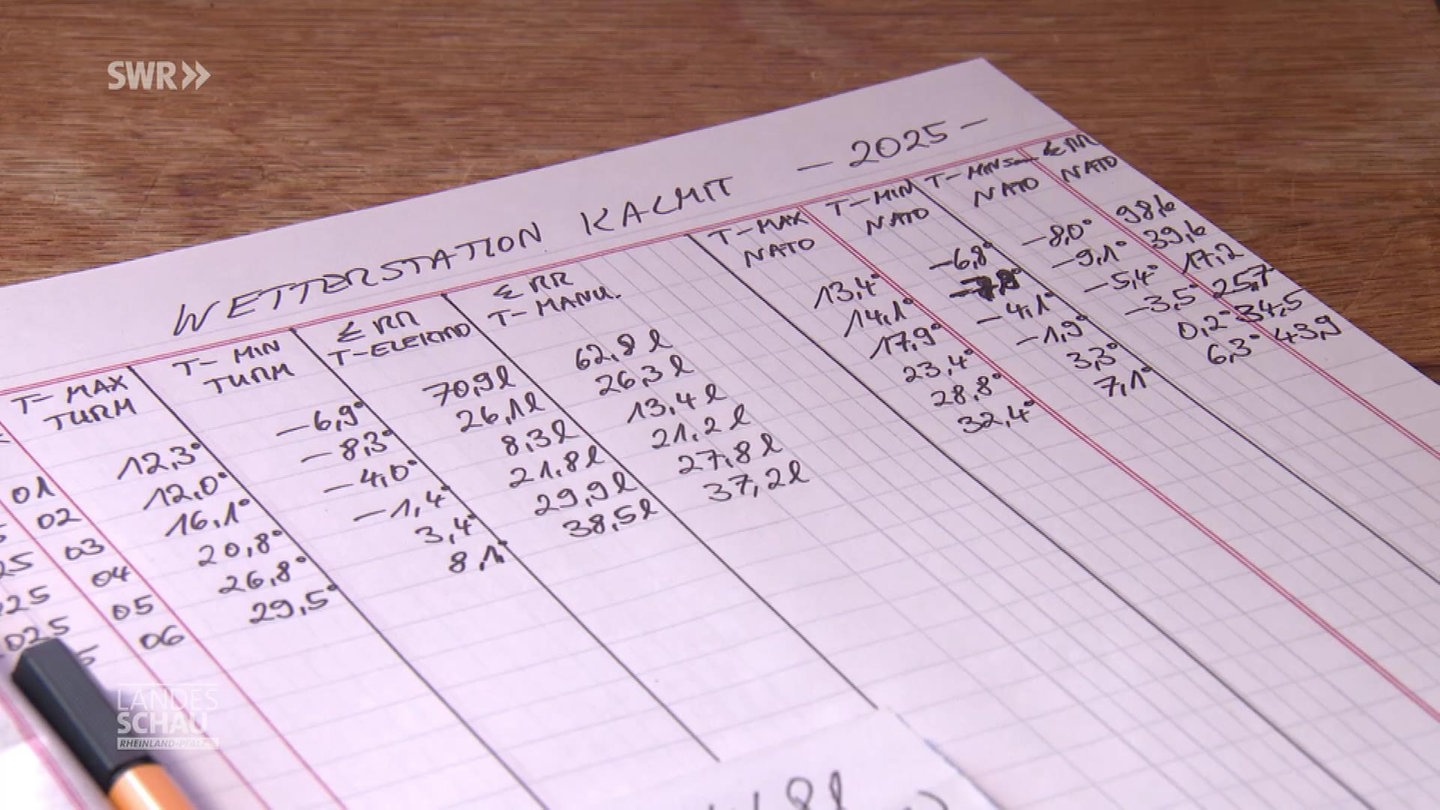 SWR»
WETTERSTATION KALMIT – 2025 –
T– MAX TURM T– MIN TURM Σ RR T–ELEKTRO Σ RR T–MANU. T–MAX NATO T–MIN NATO T–MIN NATO Σ RR NATO
01 12,3° –6,9° 70,9l 62,8l 13,4° –6,8° –8,0° 98,6
02 12,0° –8,3° 26,1l 26,3l 14,1° –9,1° 39,6
25 03 16,1° –4,0° 8,3l 13,4l 17,9° –4,1° –5,4° 17,2
025 04 20,8° –1,4° 21,8l 21,2l 23,4° –1,9° –3,5° 25,7
025 05 26,8° 3,4° 29,9l 27,8l 28,8° 3,3° 0,2° 34,5
5 06 29,5° 8,1° 38,5l 37,2l 32,4° 7,1° 6,3° 43,9
LANDES
SCHAU
RHEINLAND-PFALZ